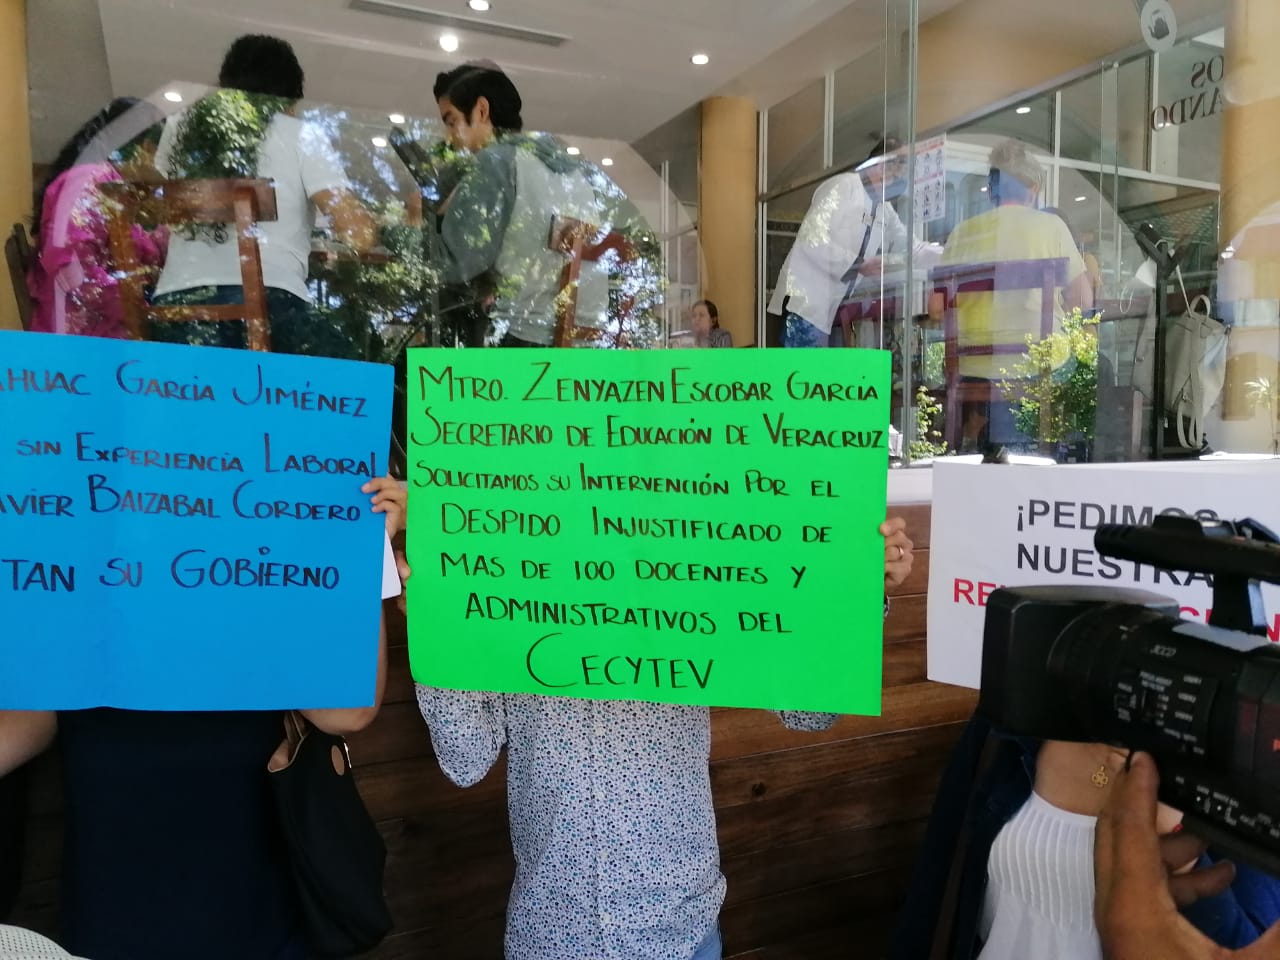 GARCIA JIMÉNEZ
SIN EXPERIENCIA LABORAL
BAIZABAL CORDERO
SU GOBIERNO
MTRO. ZENYAZEN ESCOBAR GARCÍA
SECRETARIO DE EDUCACIÓN DE VERACRUZ
SOLICITAMOS SU INTERVENCIÓN POR EL
DESPIDO INJUSTIFICADO DE
MAS DE 100 DOCENTES Y
ADMINISTRATIVOS DEL
CECYTEV
¡PEDIMOS
NUESTRA